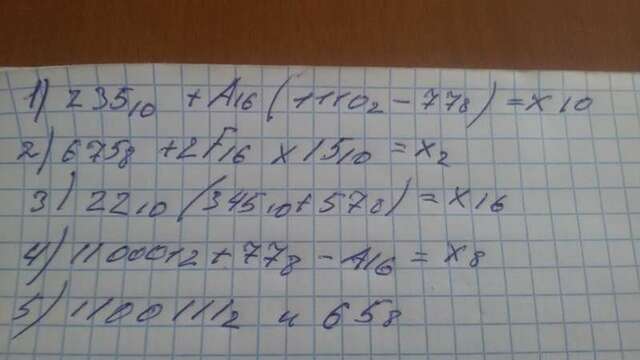 1) 235₁₀ + A₁₆ (1110₂ - 77₈) = x 10
2) 675₈ + 2F₁₆ x 15₁₀ = x₂
3) 22₁₀ (345₁₀ + 57₈) = x₁₆
4) 110001₂ + 77₈ - A₁₆ = x₈
5) 1100111₂ и 65₈